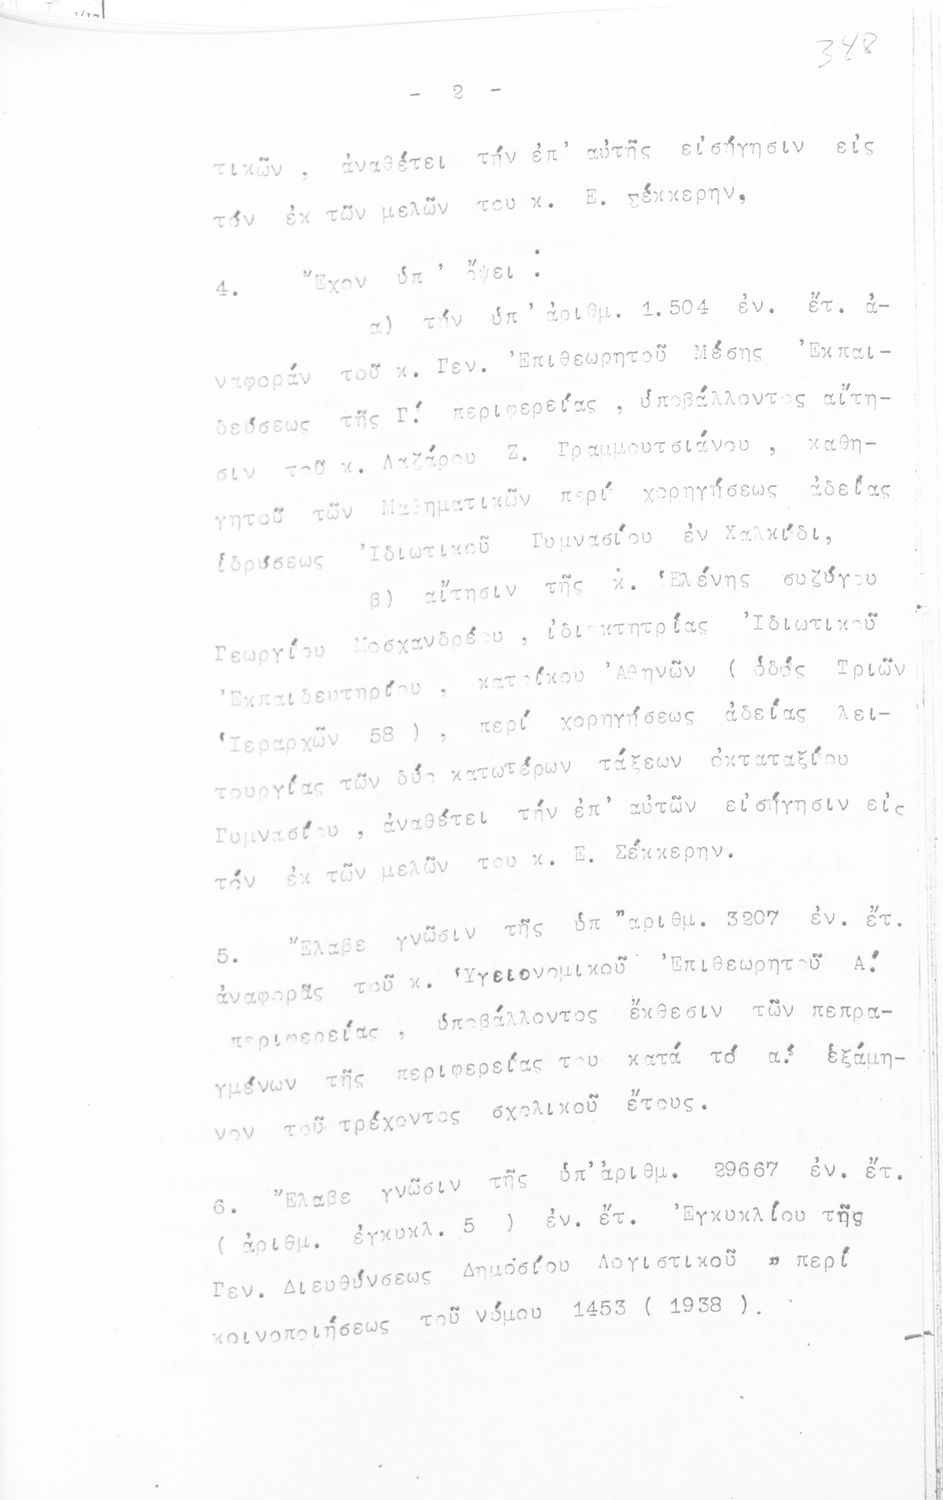 348
- 2 -
τικῶν , ἀναθέτει τήν ἐπ' αὐτῆς εἰσήγησιν εἰς
τόν ἐκ τῶν μελῶν του κ. Ε. Σέκκερην,
4. Ἔχον ὑπ ' ὄψει :
α) τήν ὑπ'ἀριθμ. 1.504 ἐν. ἔτ. ἀ-
ναφοράν τοῦ κ. Γεν. Ἐπιθεωρητοῦ Μέσης Ἐκπαι-
δεύσεως τῆς Γ΄. περιφερείας , ὑποβάλλοντος αἴτη-
σιν τοῦ κ. Λαζάρου Ζ. Γραμμουτσιάνου , καθη-
γητοῦ τῶν Μαθηματικῶν περί χορηγήσεως ἀδείας
ἱδρύσεως Ἰδιωτικοῦ Γυμνασίου ἐν Χαλκίδι,
β) αἴτησιν τῆς κ. Ἑλένης συζύγου
Γεωργίου Μοσχανδρέου , ἰδιοκτητρίας Ἰδιωτικοῦ
Ἐκπαιδευτηρίου , κατοίκου Ἀθηνῶν ( ὁδός Τριῶν
Ἱεραρχῶν 58 ) , περί χορηγήσεως ἀδείας λει-
τουργίας τῶν δύο κατωτέρων τάξεων ὀκταταξίου
Γυμνασίου , ἀναθέτει τήν ἐπ' αὐτῶν εἰσήγησιν εἰς
τόν ἐκ τῶν μελῶν του κ. Ε. Σέκκερην.
5. Ἔλαβε γνῶσιν τῆς ὑπ "αριθμ. 3207 ἐν. ἔτ.
ἀναφορᾶς τοῦ κ. Ὑγειονομικοῦ Ἐπιθεωρητοῦ Α΄.
περιφερείας , ὑποβάλλοντος ἔκθεσιν τῶν πεπρα-
γμένων τῆς περιφερείας του κατά τό α΄. ἑξάμη-
νον τοῦ τρέχοντος σχολικοῦ ἔτους.
6. Ἔλαβε γνῶσιν τῆς ὑπ'ἀριθμ. 29667 ἐν. ἔτ.
( ἀριθμ. ἐγκυκλ. 5 ) ἐν. ἔτ. Ἐγκυκλίου τῆς
Γεν. Διευθύνσεως Δημόσίου Λογιστικοῦ " περί
κοινοποιήσεως τοῦ νόμου 1453 ( 1938 ).